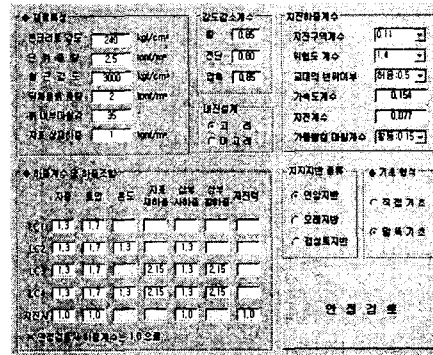 ◆ 재료특성
콘크리트 강도 240 kgf/cm²
단 위 중 량 2.5 tonf/m³
철 근 강 도 3000 kgf/cm²
뒤채움토 중량 2 tonf/m³
뒤 내부마찰각 35
지표 상재하중 tonf/m²
강도감소계수
휨 0.85
전단 0.80
압축 0.65
내진설계
고 려
미고려
지진하중계수
지진구역계수 0.11
위험도 계수 1.4
교대의 변위여부 허용:0.5
가속도계수 0.154
지진계수 0.077
가동받침 마찰계수 활동:0.15
◆ 하중계수 및 하중조합
자중 토압 온도 지표재하중 상부사하중 상부활하중 지진력
LC1 1.3 1.7
LC2 1.3 1.7 1.3 1.3
LC3 1.3 1.7 2.15 1.3 2.15
LC4 1.3 1.7 1.3 2.15 1.3 2.15
지진시 1.0 1.0 1.0 1.0
지지지반 종류
연암지반
모래지반
점성토지반
◆ 기초 형식
직접 기초
말뚝기초
안 정 검 토